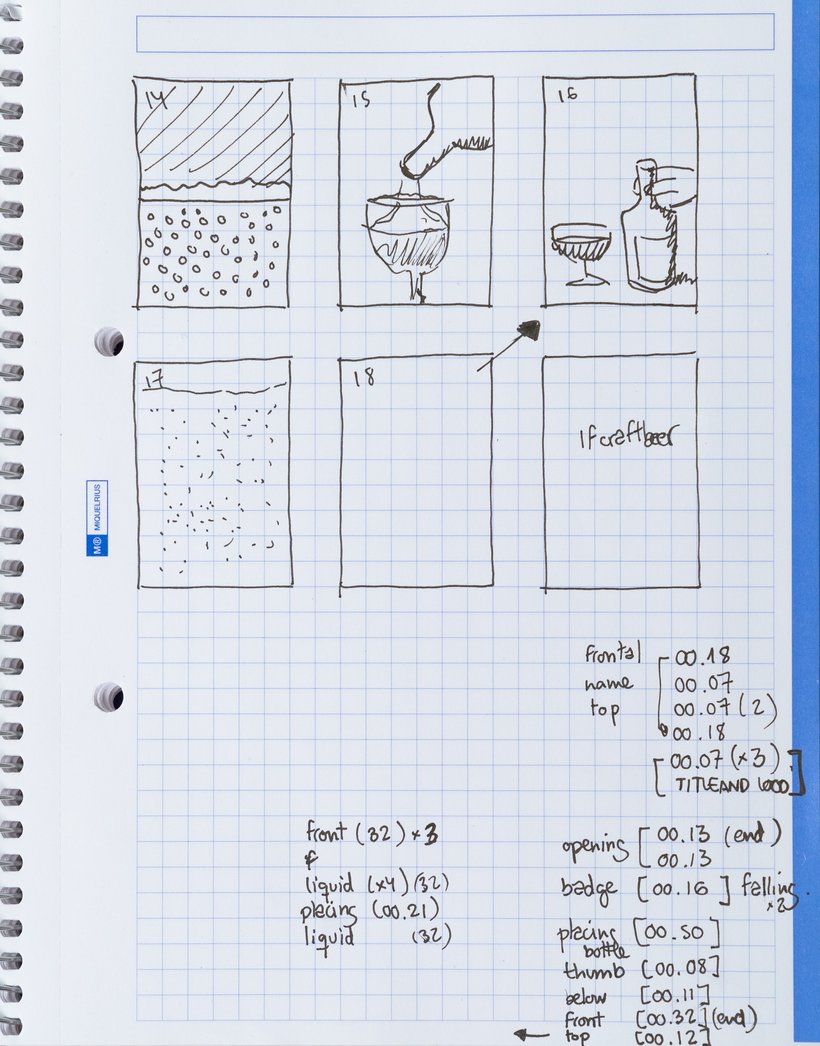 14
15
16
17
18
If craft beer
M® MIQUELRIUS
frontal
name
top
00.18
00.07
00.07 (2)
00.18
00.07 (x3)
TITLE AND LOGO
front (32) x 3
liquid (x4) (32)
placing (00.21)
liquid (32)
opening [ 00.13 (end)
00.13
badge [00.16] falling
x2
placing [00.50]
bottle
thumb [00.08]
below [00.11]
front [00.32] (end)
top [00.12]